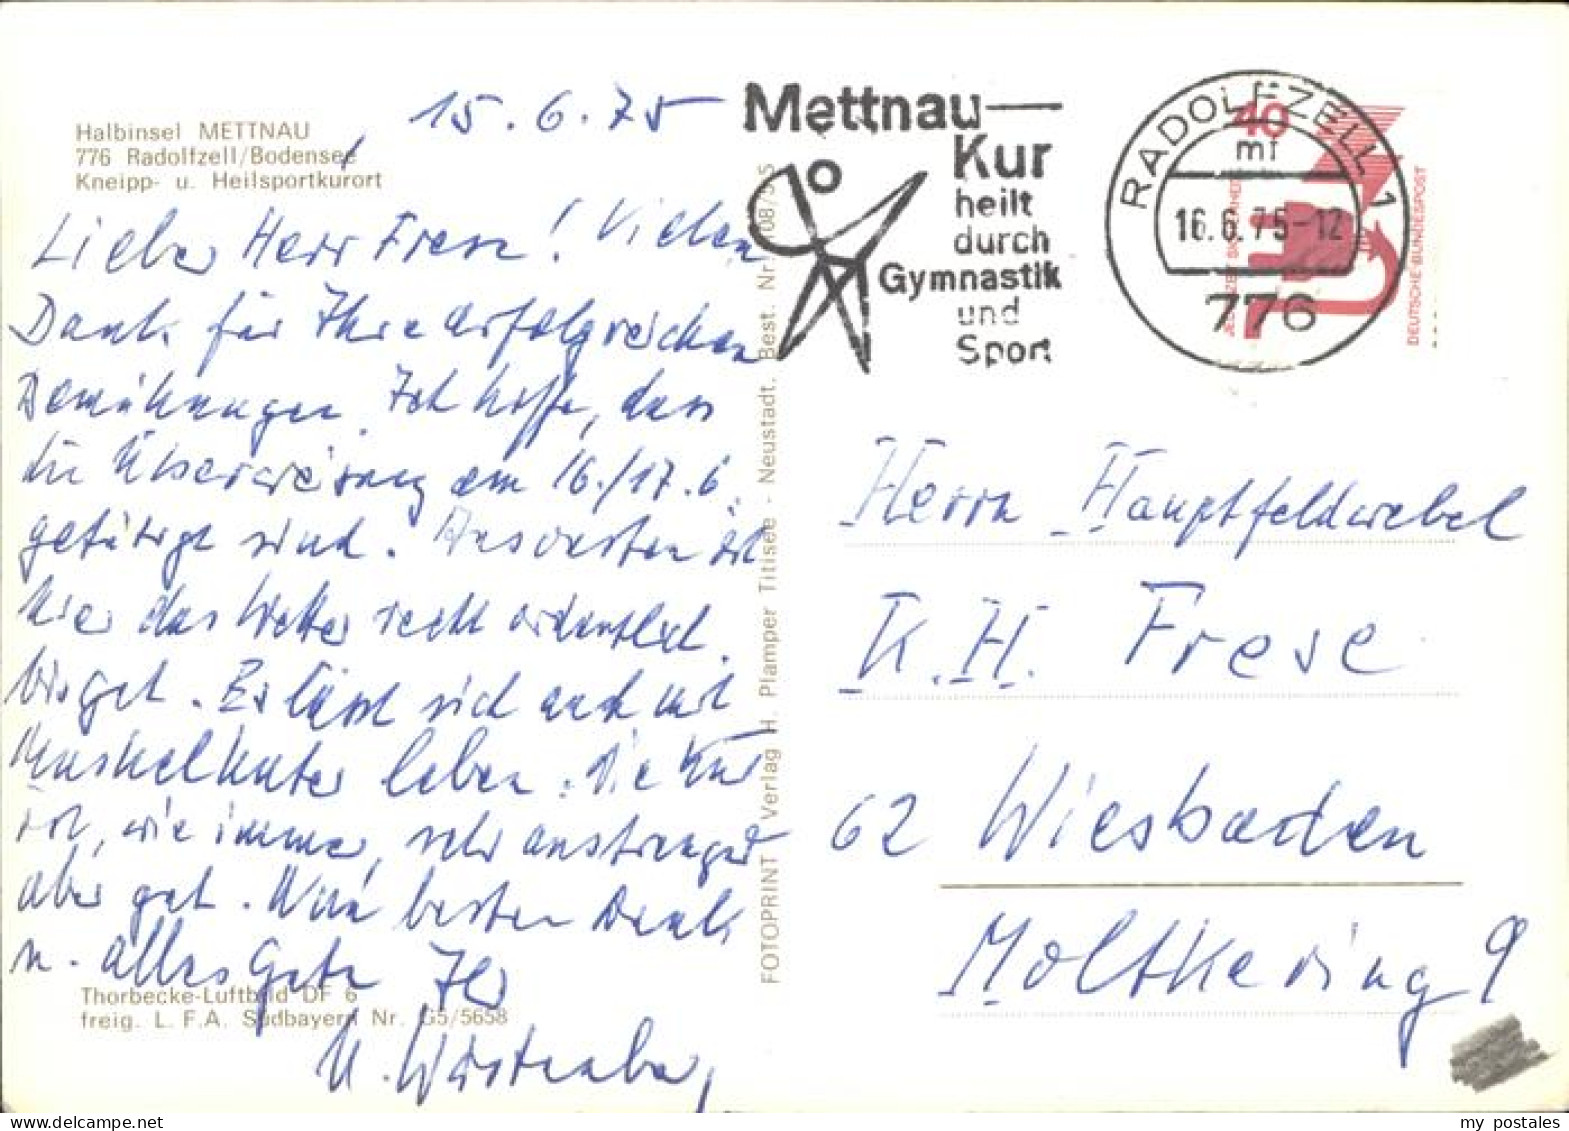 Halbinsel METTNAU
776 Radolfzell/Bodensee
Kneipp- u. Heilsportkurort
15.6.75
Lieber Herr Frese! Vielen
Dank für Ihre erfolgreichen
Bemühungen. Ich hoffe, dass
die Überweisung am 16./17.6.
getätigt sind. Ansonsten ist
hier das Wetter recht ordentlich
bis gut. Es lässt sich auch mit
Muskelkater leben. Die Kur
ist, wie immer, sehr anstrengend
aber gut. Nun besten Dank
u. alles Gute Ihr
Thorbecke-Luftbild DF 6
freig. L.F.A. Südbayern Nr. G5/5658
FOTOPRINT Verlag H. Plamper Titisee - Neustadt. Best. Nr.
Mettnau—
Kur
heilt
durch
Gymnastik
und
Sport
RADOLFZELL 1
mf
16.6.75-12
776
40
JEDERZEIT SICHERHEIT
DEUTSCHE BUNDESPOST
Herrn Hauptfeldwebel
K.H. Frese
62 Wiesbaden
Moltkering 9
my postales